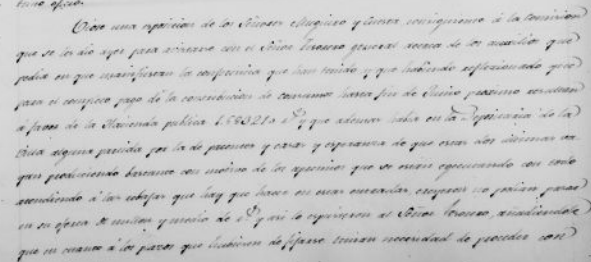 tuno oficio.
Viose una esposicion de los Señores Muguiro y Cuesta, consiguiente á la comision
que se les dio ayer para avistarse con el Señor Tesorero general acerca de los ausilios que
podia en que manifiestan la conferencia que han tenido y que habiendo reflexionado que
para el completo pago de la contribucion de consumos hasta fin de Junio proximo resultan
á favor de la Hacienda publica y que ademas habia en la Depositaria de la
Villa alguna partida por la de y casas y esperanza de que estas dos ultimas va
yan produciendo bastante con motivo de los apremios que se estan egecutando con todo
atendiendo á las rebajas que hay que hacer en estas entradas, creyeron no podian pasar
en su oferta de millon y medio de y asi lo espusieron al Señor Tesorero, añadiendole
que en cuanto á los plazos que hubiesen de fijarse tenian necesidad de proceder con